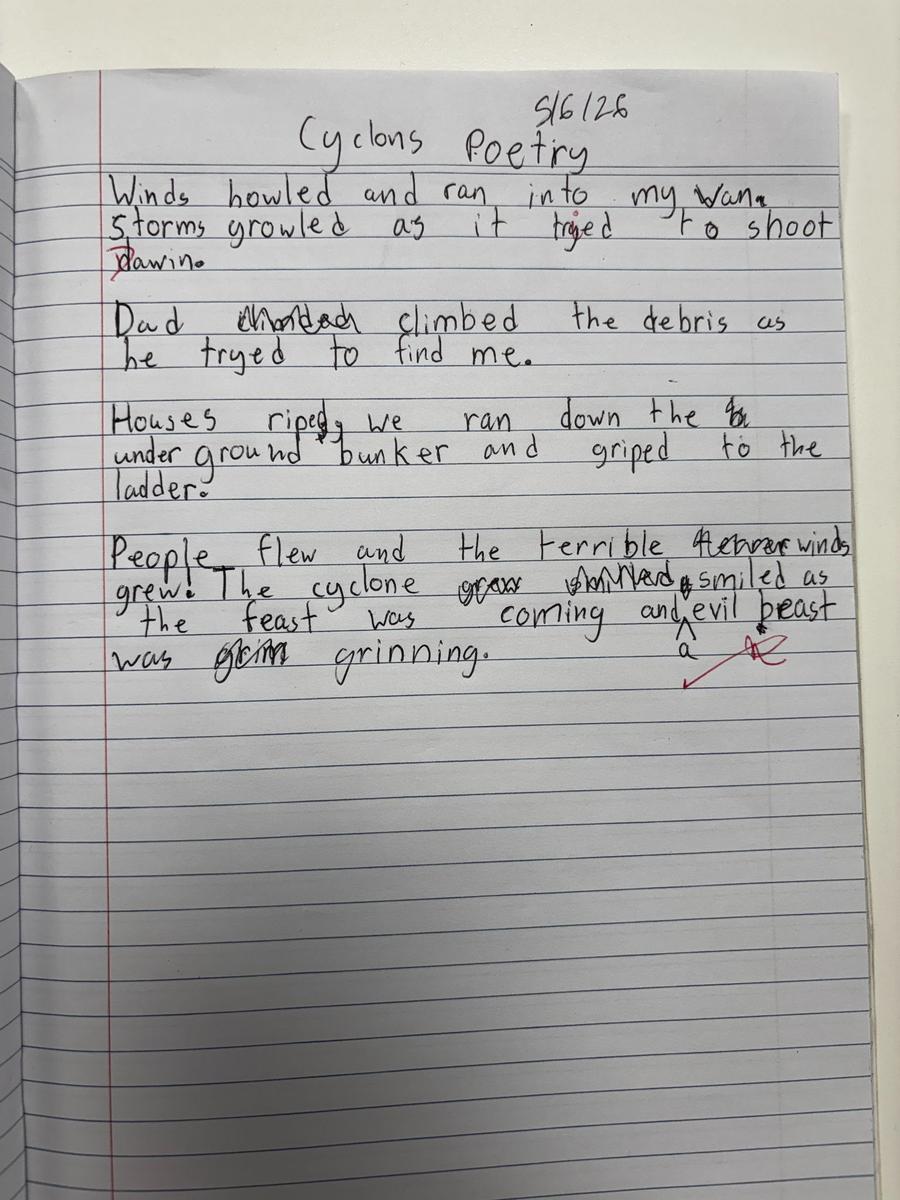 5/6/26
Cyclons Poetry
Winds howled and ran into my van.
Storms growled as it tryed to shoot
Dawin.
Dad climbed the debris as
he tryed to find me.
Houses riped, we ran down the
underground bunker and griped to the
ladder.
People flew and the terrible winds
grew! The cyclone smiled as
the feast was coming and a evil beast
was grinning.